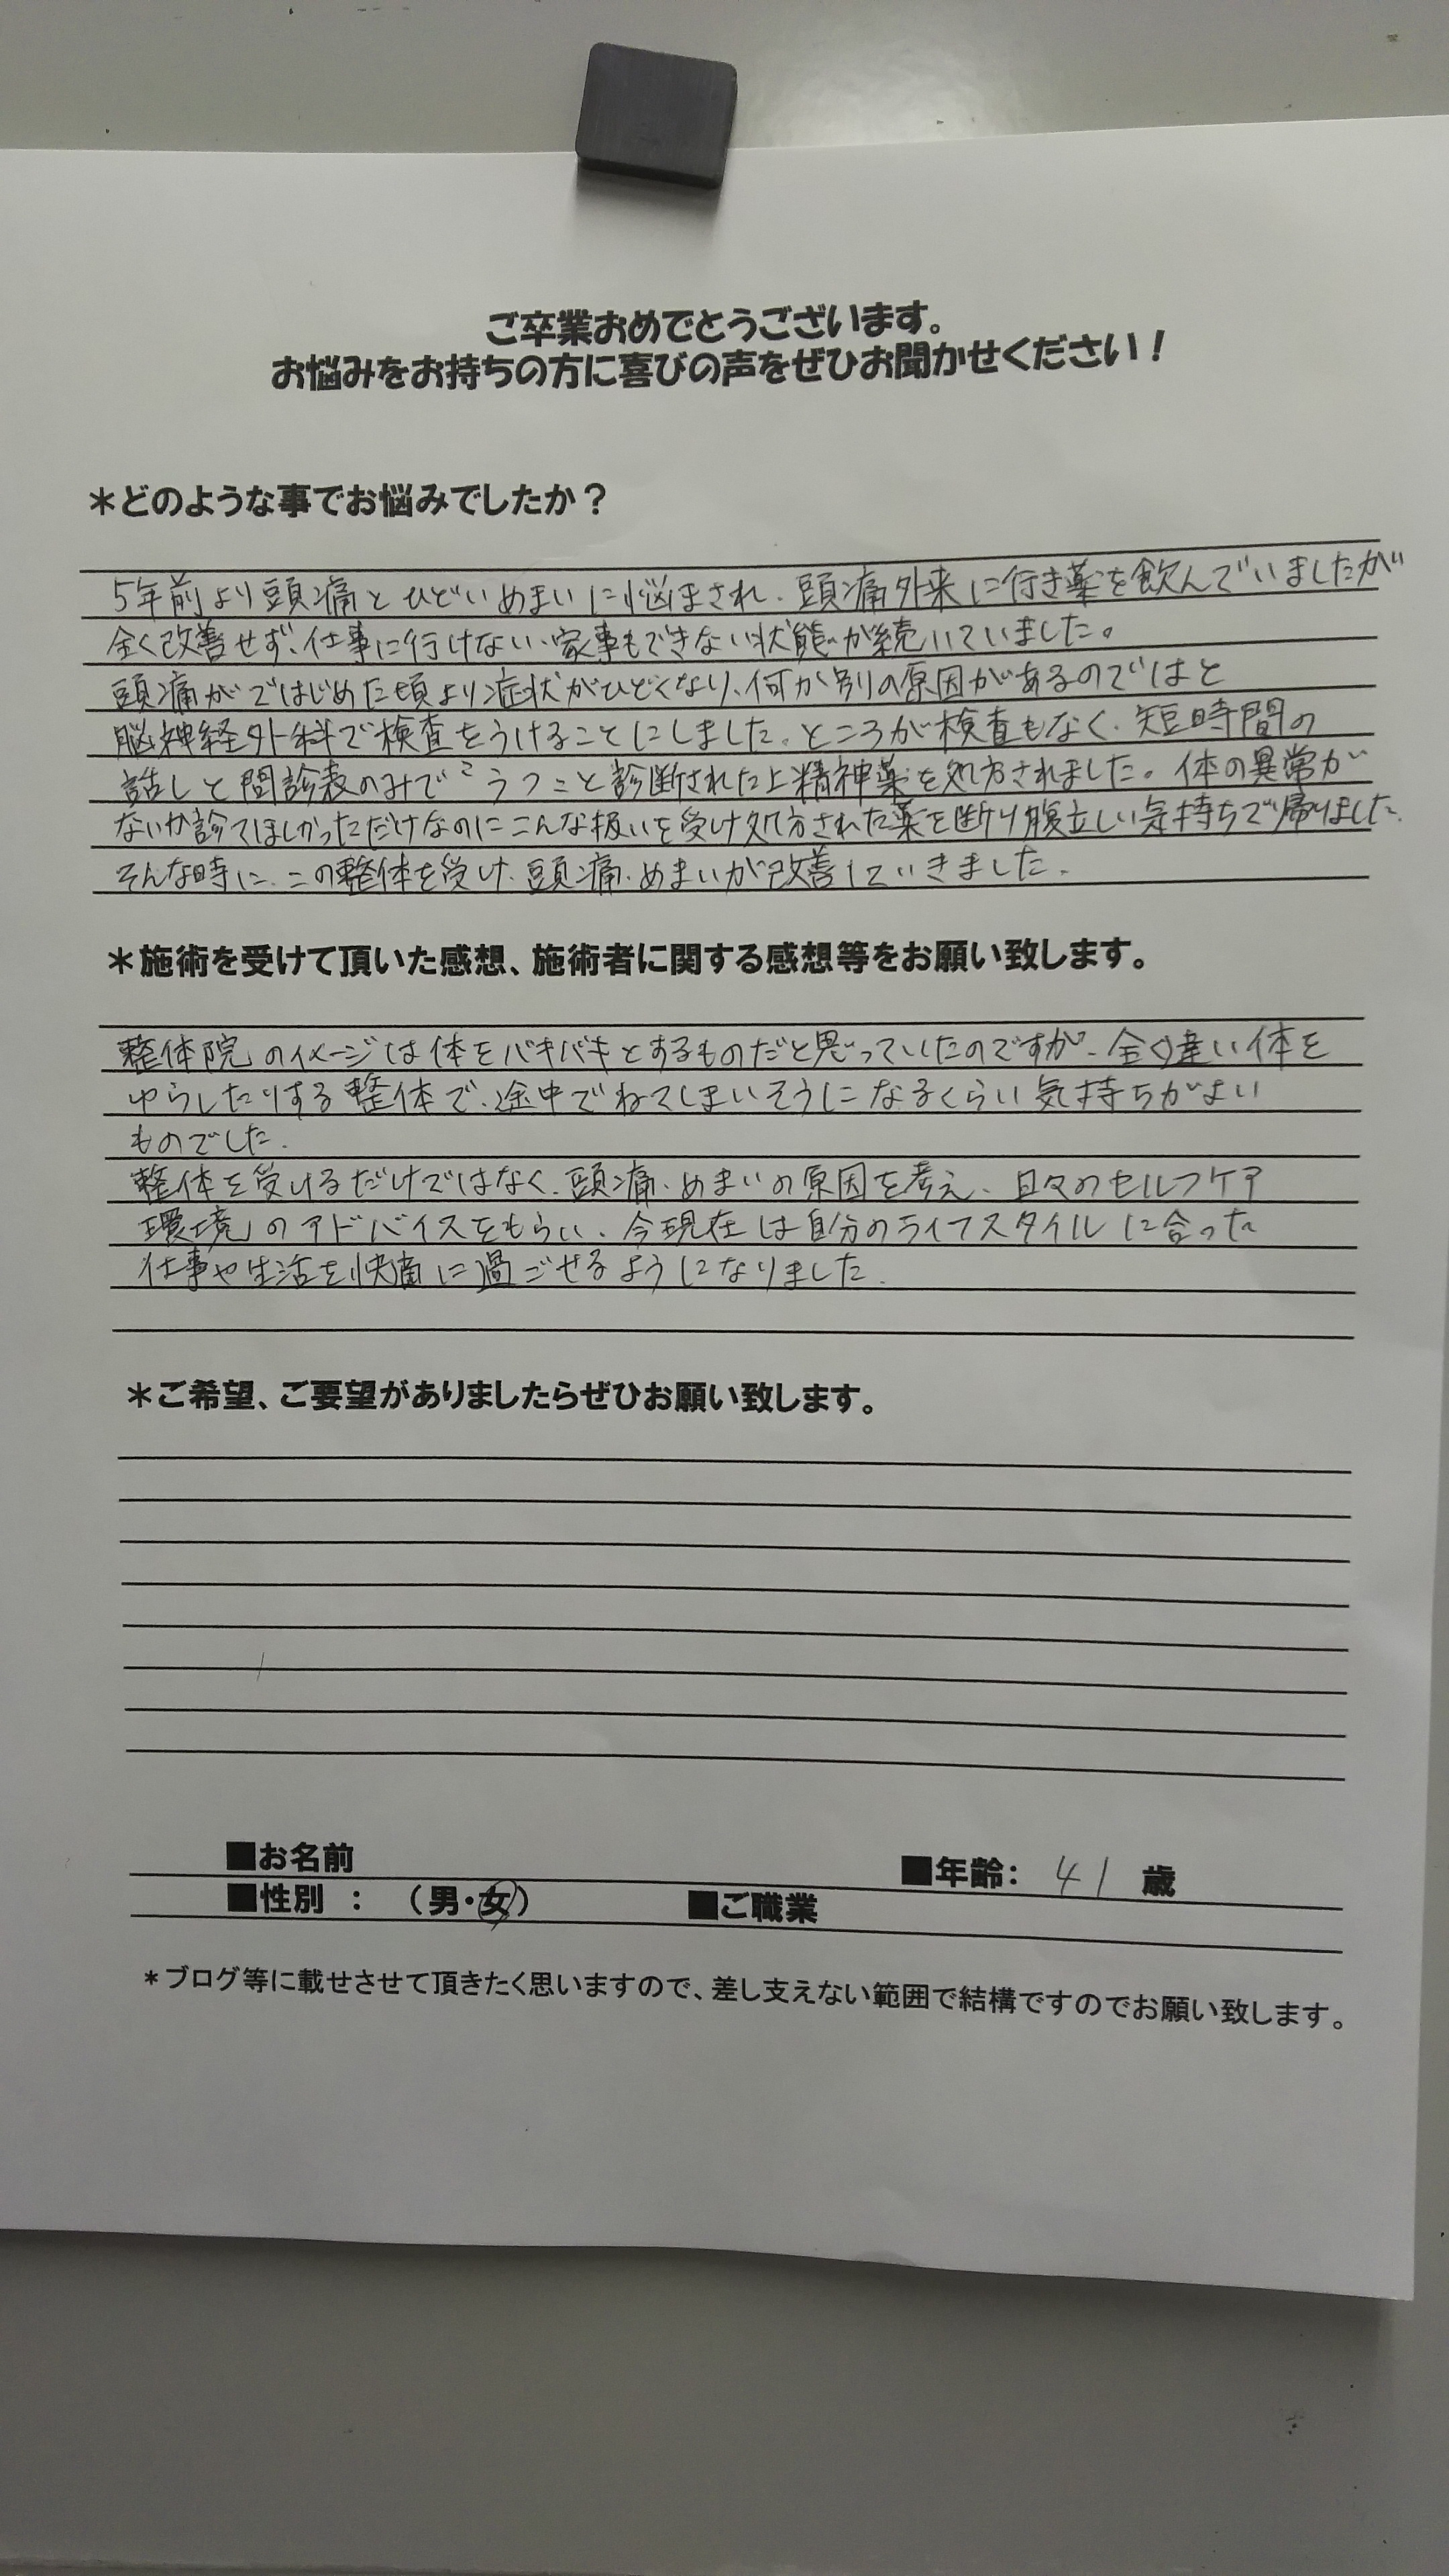 ご卒業おめでとうございます。
お悩みをお持ちの方に喜びの声をぜひお聞かせください！
＊どのような事でお悩みでしたか？
5年前より頭痛とひどいめまいに悩まされ、頭痛外来に行き薬を飲んでいましたが
全く改善せず、仕事に行けない、家事もできない状態が続いていました。
頭痛がではじめた頃より症状がひどくなり、何か別の原因があるのではと
脳神経外科で検査をうけることにしました。ところが検査もなく、短時間の
話しと問診表のみで〝うつ〟と診断された上精神薬を処方されました。体の異常が
ないか診てほしかっただけなのにこんな扱いを受け処方された薬を断り腹立しい気持ちで帰りました。
そんな時に、この整体を受け、頭痛、めまいが改善していきました。
＊施術を受けて頂いた感想、施術者に関する感想等をお願い致します。
整体院のイメージは体をバキバキとするものだと思っていたのですが、全く違い体を
ゆらしたりする整体で、途中でねてしまいそうになるくらい気持ちがよい
ものでした。
整体を受けるだけではなく、頭痛、めまいの原因を考え、日々のセルフケア
環境のアドバイスをもらい、今現在は自分のライフスタイルに合った
仕事や生活を快適に過ごせるようになりました。
＊ご希望、ご要望がありましたらぜひお願い致します。
■お名前 ■年齢： 41 歳
■性別 ：（男・女） ■ご職業
＊ブログ等に載せさせて頂きたく思いますので、差し支えない範囲で結構ですのでお願い致します。